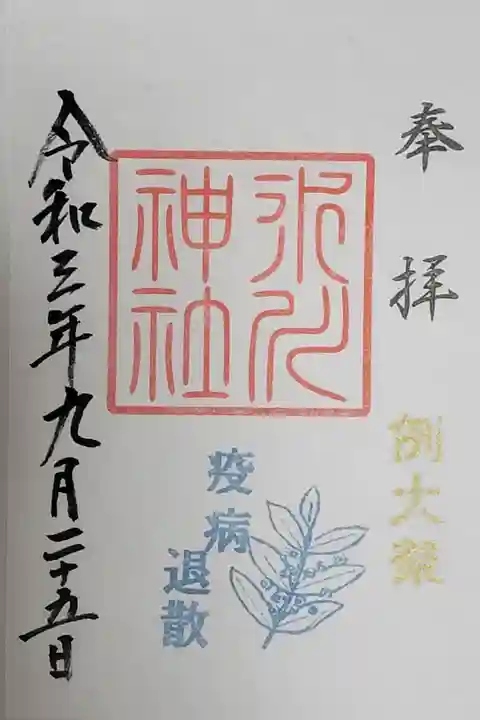 奉拝
例大祭
氷川
神社
疫病
退散
令和三年九月二十五日